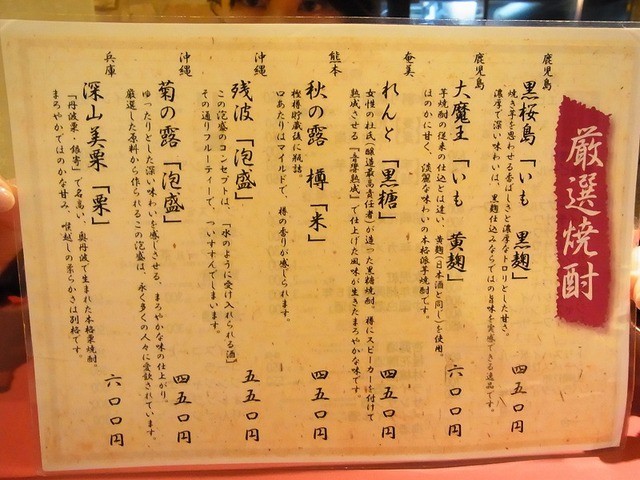 厳選焼酎
鹿児島
黒桜島「いも 黒麹」
焼き芋を思わせる香ばしさと濃厚なトロリとした甘さ。
濃厚で深い味わいは、黒麹仕込みならではの旨味を実感できる逸品です。
四五〇円
鹿児島
大魔王「いも 黄麹」
芋焼酎の従来の仕込とは違い、黄麹(日本酒と同じ)を使用。
ほのかに甘く、淡麗な味わいの本格派芋焼酎です。
六〇〇円
奄美
れんと「黒糖」
女性の杜氏(醸造最高責任者)が造った黒糖焼酎。樽にスピーカーを付けて
熟成させる「音響熟成」で仕上げた風味が生きたまろやかな味です。
四五〇円
熊本
秋の露 樽「米」
樫樽貯蔵後に瓶詰。
口あたりはマイルドで、樽の香りが感じられます。
四五〇円
沖縄
残波「泡盛」
この泡盛のコンセプトは、「水のように受け入れられる酒」
その通りフルーティーで、「いすすんでしまいます。
五五〇円
沖縄
菊の露「泡盛」
ゆったりとした深い味わいを感じさせる、まろやかな味の仕上がり。
厳選した原料から作られるこの泡盛は、永く多くの人々に愛飲されています。
四五〇円
兵庫
深山美栗「栗」
「丹波栗・銀寄」で名高い、奥丹波で生まれた本格栗焼酎。
まろやかでほのかな甘み、喉越しの柔らかさは別格です。
六〇〇円